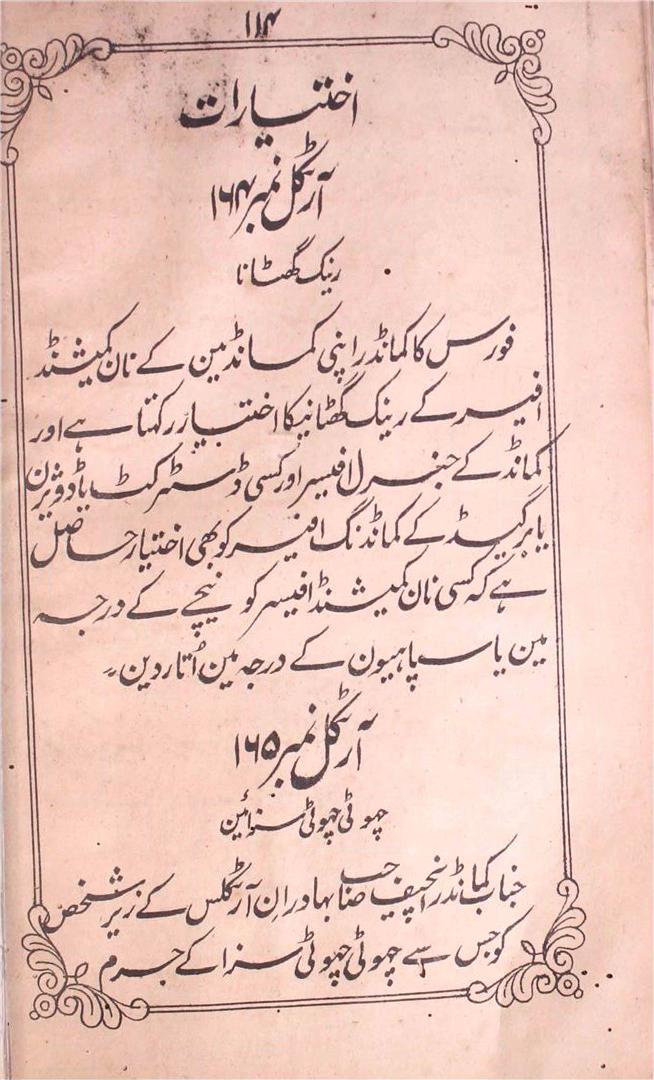 ۱۱۴
اختیارات
آرٹکل نمبر ۱۶۴
رینک گھٹانا
فورس کا کمانڈر اپنی کمانڈ مین کے نان کمیشنڈ
افیسر کے رینک گھٹانیکا اختیار رکہتا ہے اور
کمانڈ کے جنرل افیسر اور کسی ڈسٹرکٹ یا ڈویژن
یا برگیڈ کے کمانڈنگ افیسر کو بھی اختیار حاصل
ہے کہ کسی نان کمیشنڈ افیسر کو نیچے کے درجہ
مین یا سپاہیون کے درجہ مین اُتار دین۔
آرٹکل نمبر ۱۶۵
چہوٹی چہوٹی سزائین
جناب کمانڈر انچیف صاحب بہادر اِن آرٹکلس کے زیر شخص
کو جس سے چہوٹی چہوٹی سزا کے جرم